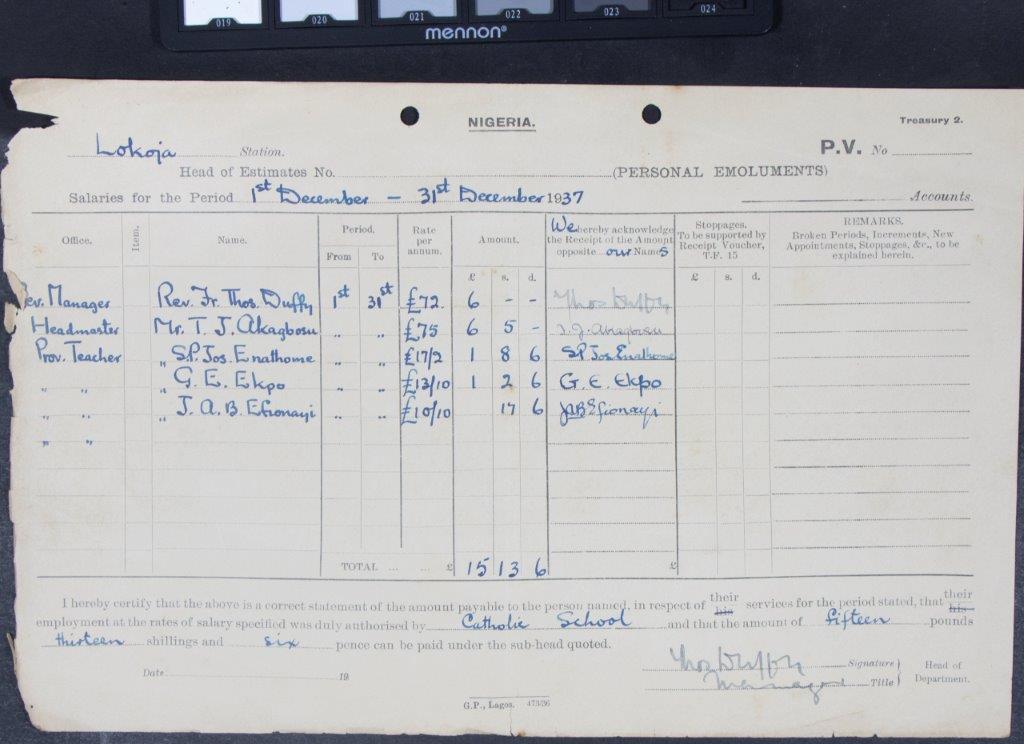 019 020 021 022 023 024
mennon®
NIGERIA.
Treasury 2.
Lokoja Station.
P.V. No
Head of Estimates No. (PERSONAL EMOLUMENTS)
Salaries for the Period 1st December – 31st December 1937 Accounts.
Office. Item. Name. Period. From To Rate per annum. Amount. £ s. d. We hereby acknowledge the Receipt of the Amount opposite our Names Stoppages. To be supported by Receipt Voucher, T.F. 15 £ s. d. REMARKS. Broken Periods, Increments, New Appointments, Stoppages, &c., to be explained herein.
ev. Manager Rev. Fr. Thos. Duffy 1st 31st £72. 6 - - Thos Duffy
Headmaster Mr. T. J. Akagbosu " " £75 6 5 - T. J. Akagbosu
Prov. Teacher " S.P. Jos. Enathome " " £17/2 1 8 6 S.P. Jos. Enathome
" " " G. E. Ekpo " " £13/10 1 2 6 G. E. Ekpo
" " " J. A. B. Efionayi " " £10/10 17 6 JAB Efionayi
" "
TOTAL ... ... £ 15 13 6 £
I hereby certify that the above is a correct statement of the amount payable to the person named, in respect of their his services for the period stated, that their his
employment at the rates of salary specified was duly authorised by Catholic School and that the amount of fifteen pounds
thirteen shillings and six pence can be paid under the sub-head quoted.
Thos Duffy Signature } Head of
Manager Title } Department.
Date 19
G.P., Lagos. 473/36